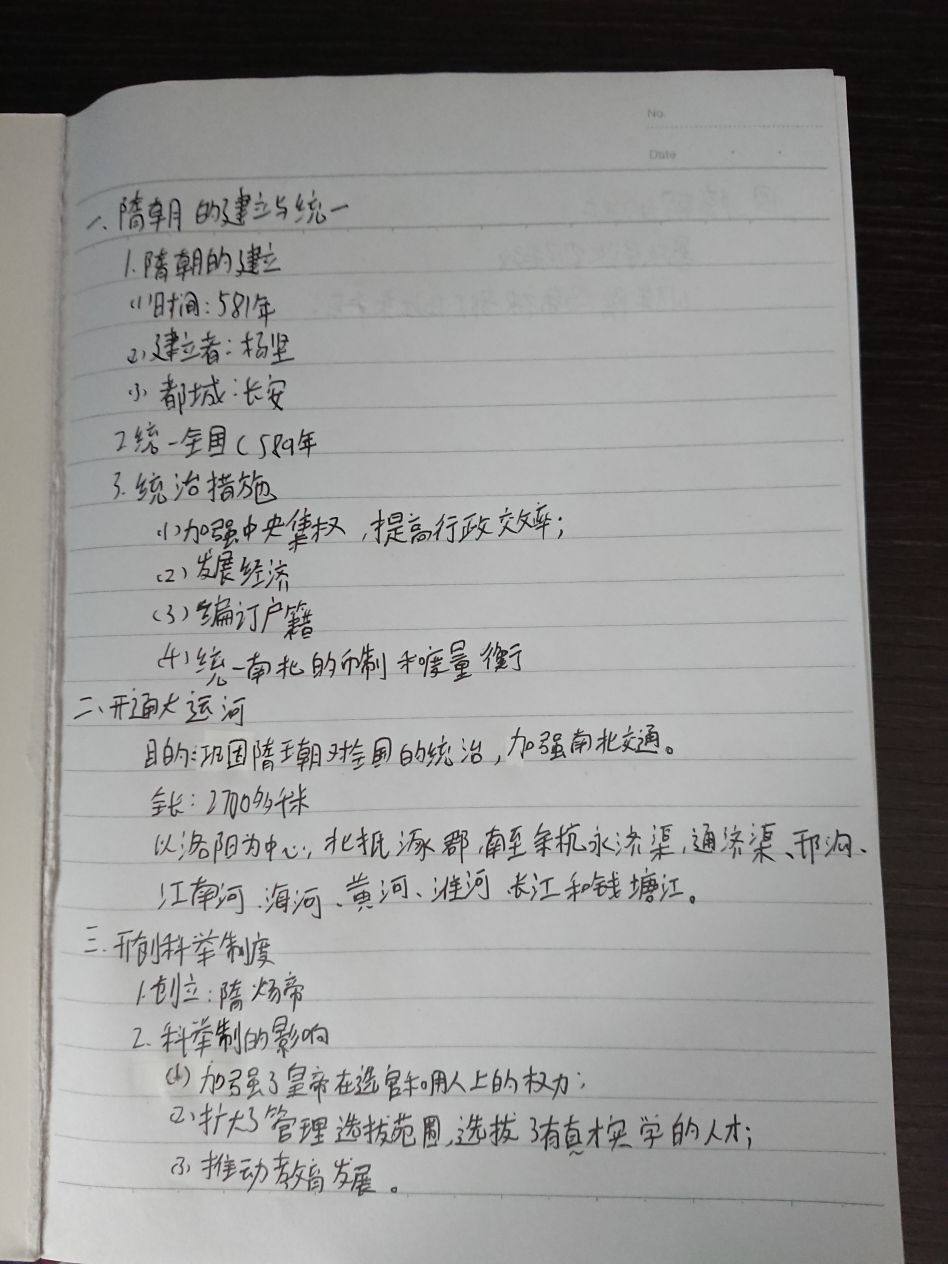 No.
Date
一、隋朝的建立与统一
1.隋朝的建立
(1)时间:581年
(2)建立者:杨坚
(3)都城:长安
2.统一全国(589年
3.统治措施
(1)加强中央集权,提高行政效率;
(2)发展经济
(3)编订户籍
(4)统一南北的币制和度量衡
二、开通大运河
目的:巩固隋王朝对全国的统治,加强南北交通。
全长:2700多千米
以洛阳为中心,北抵涿郡,南至余杭永济渠,通济渠、邗沟、
江南河、海河、黄河、淮河 长江和钱塘江。
三.开创科举制度
1.创立:隋炀帝
2.科举制的影响
(1)加强了皇帝在选官和用人上的权力;
(2)扩大了管理选拔范围,选拔了有真才实学的人才;
(3)推动教育发展。